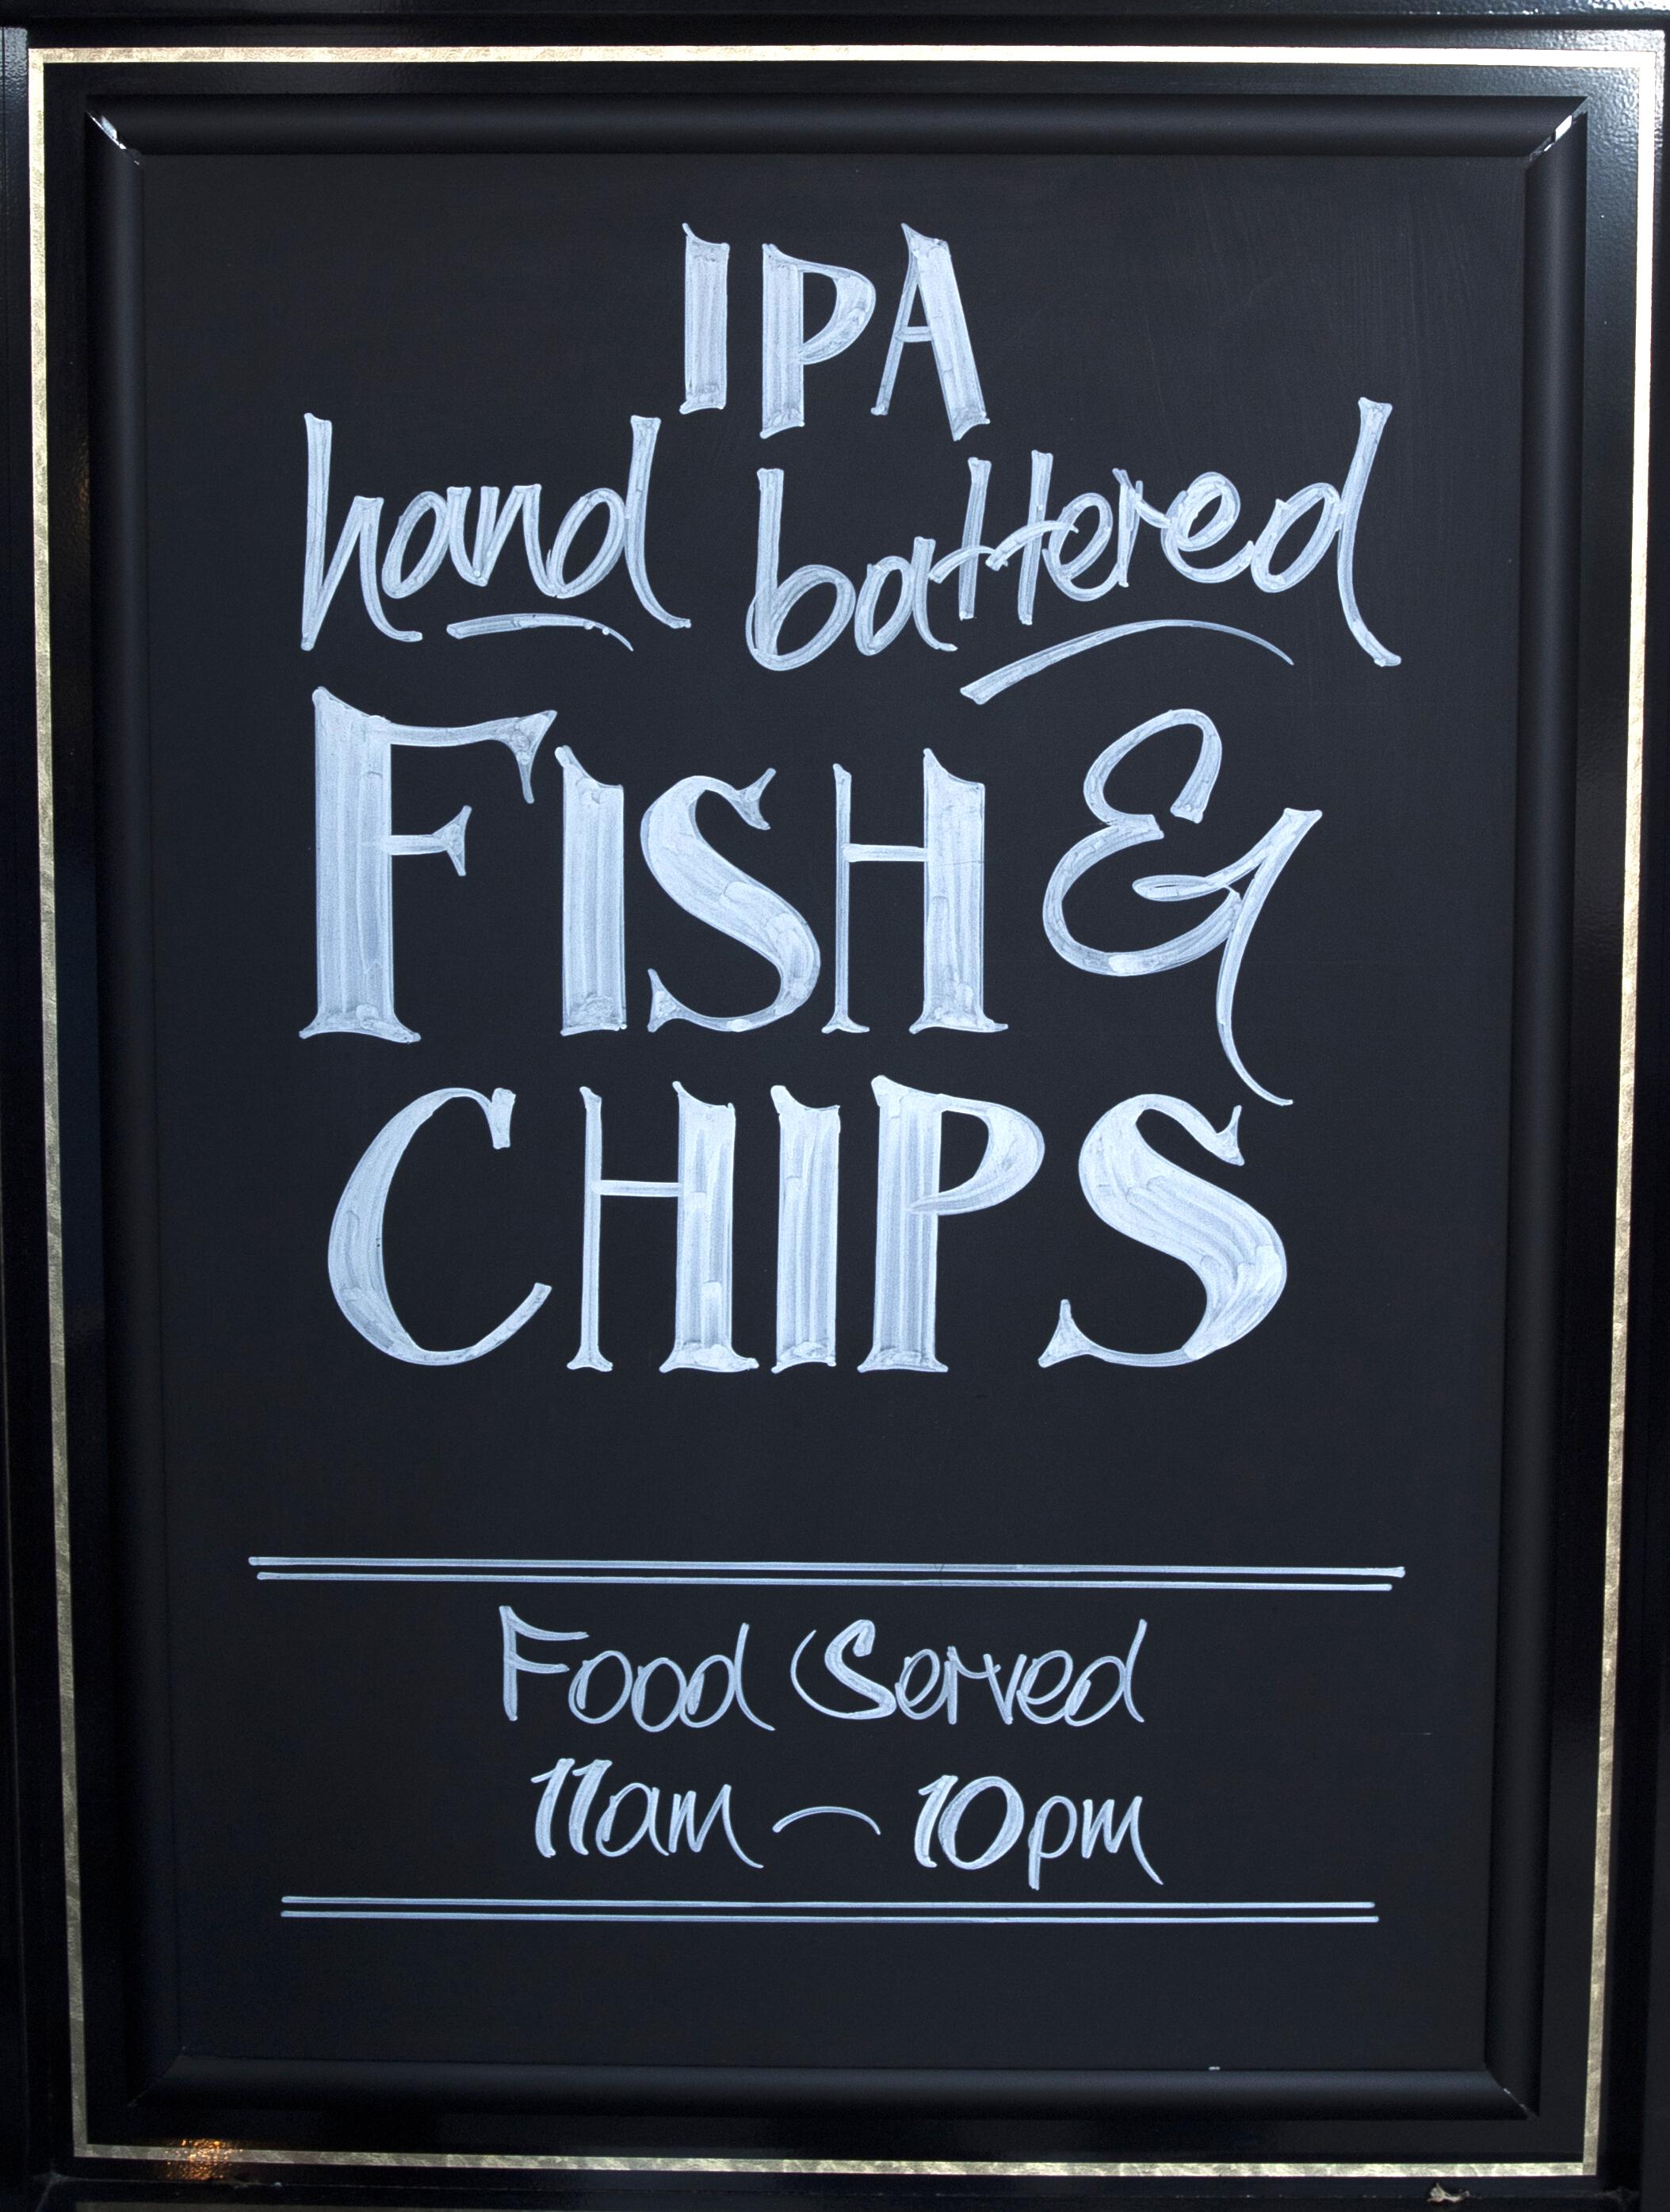 IPA
hand battered
FISH &
CHIPS
Food Served
11am - 10pm